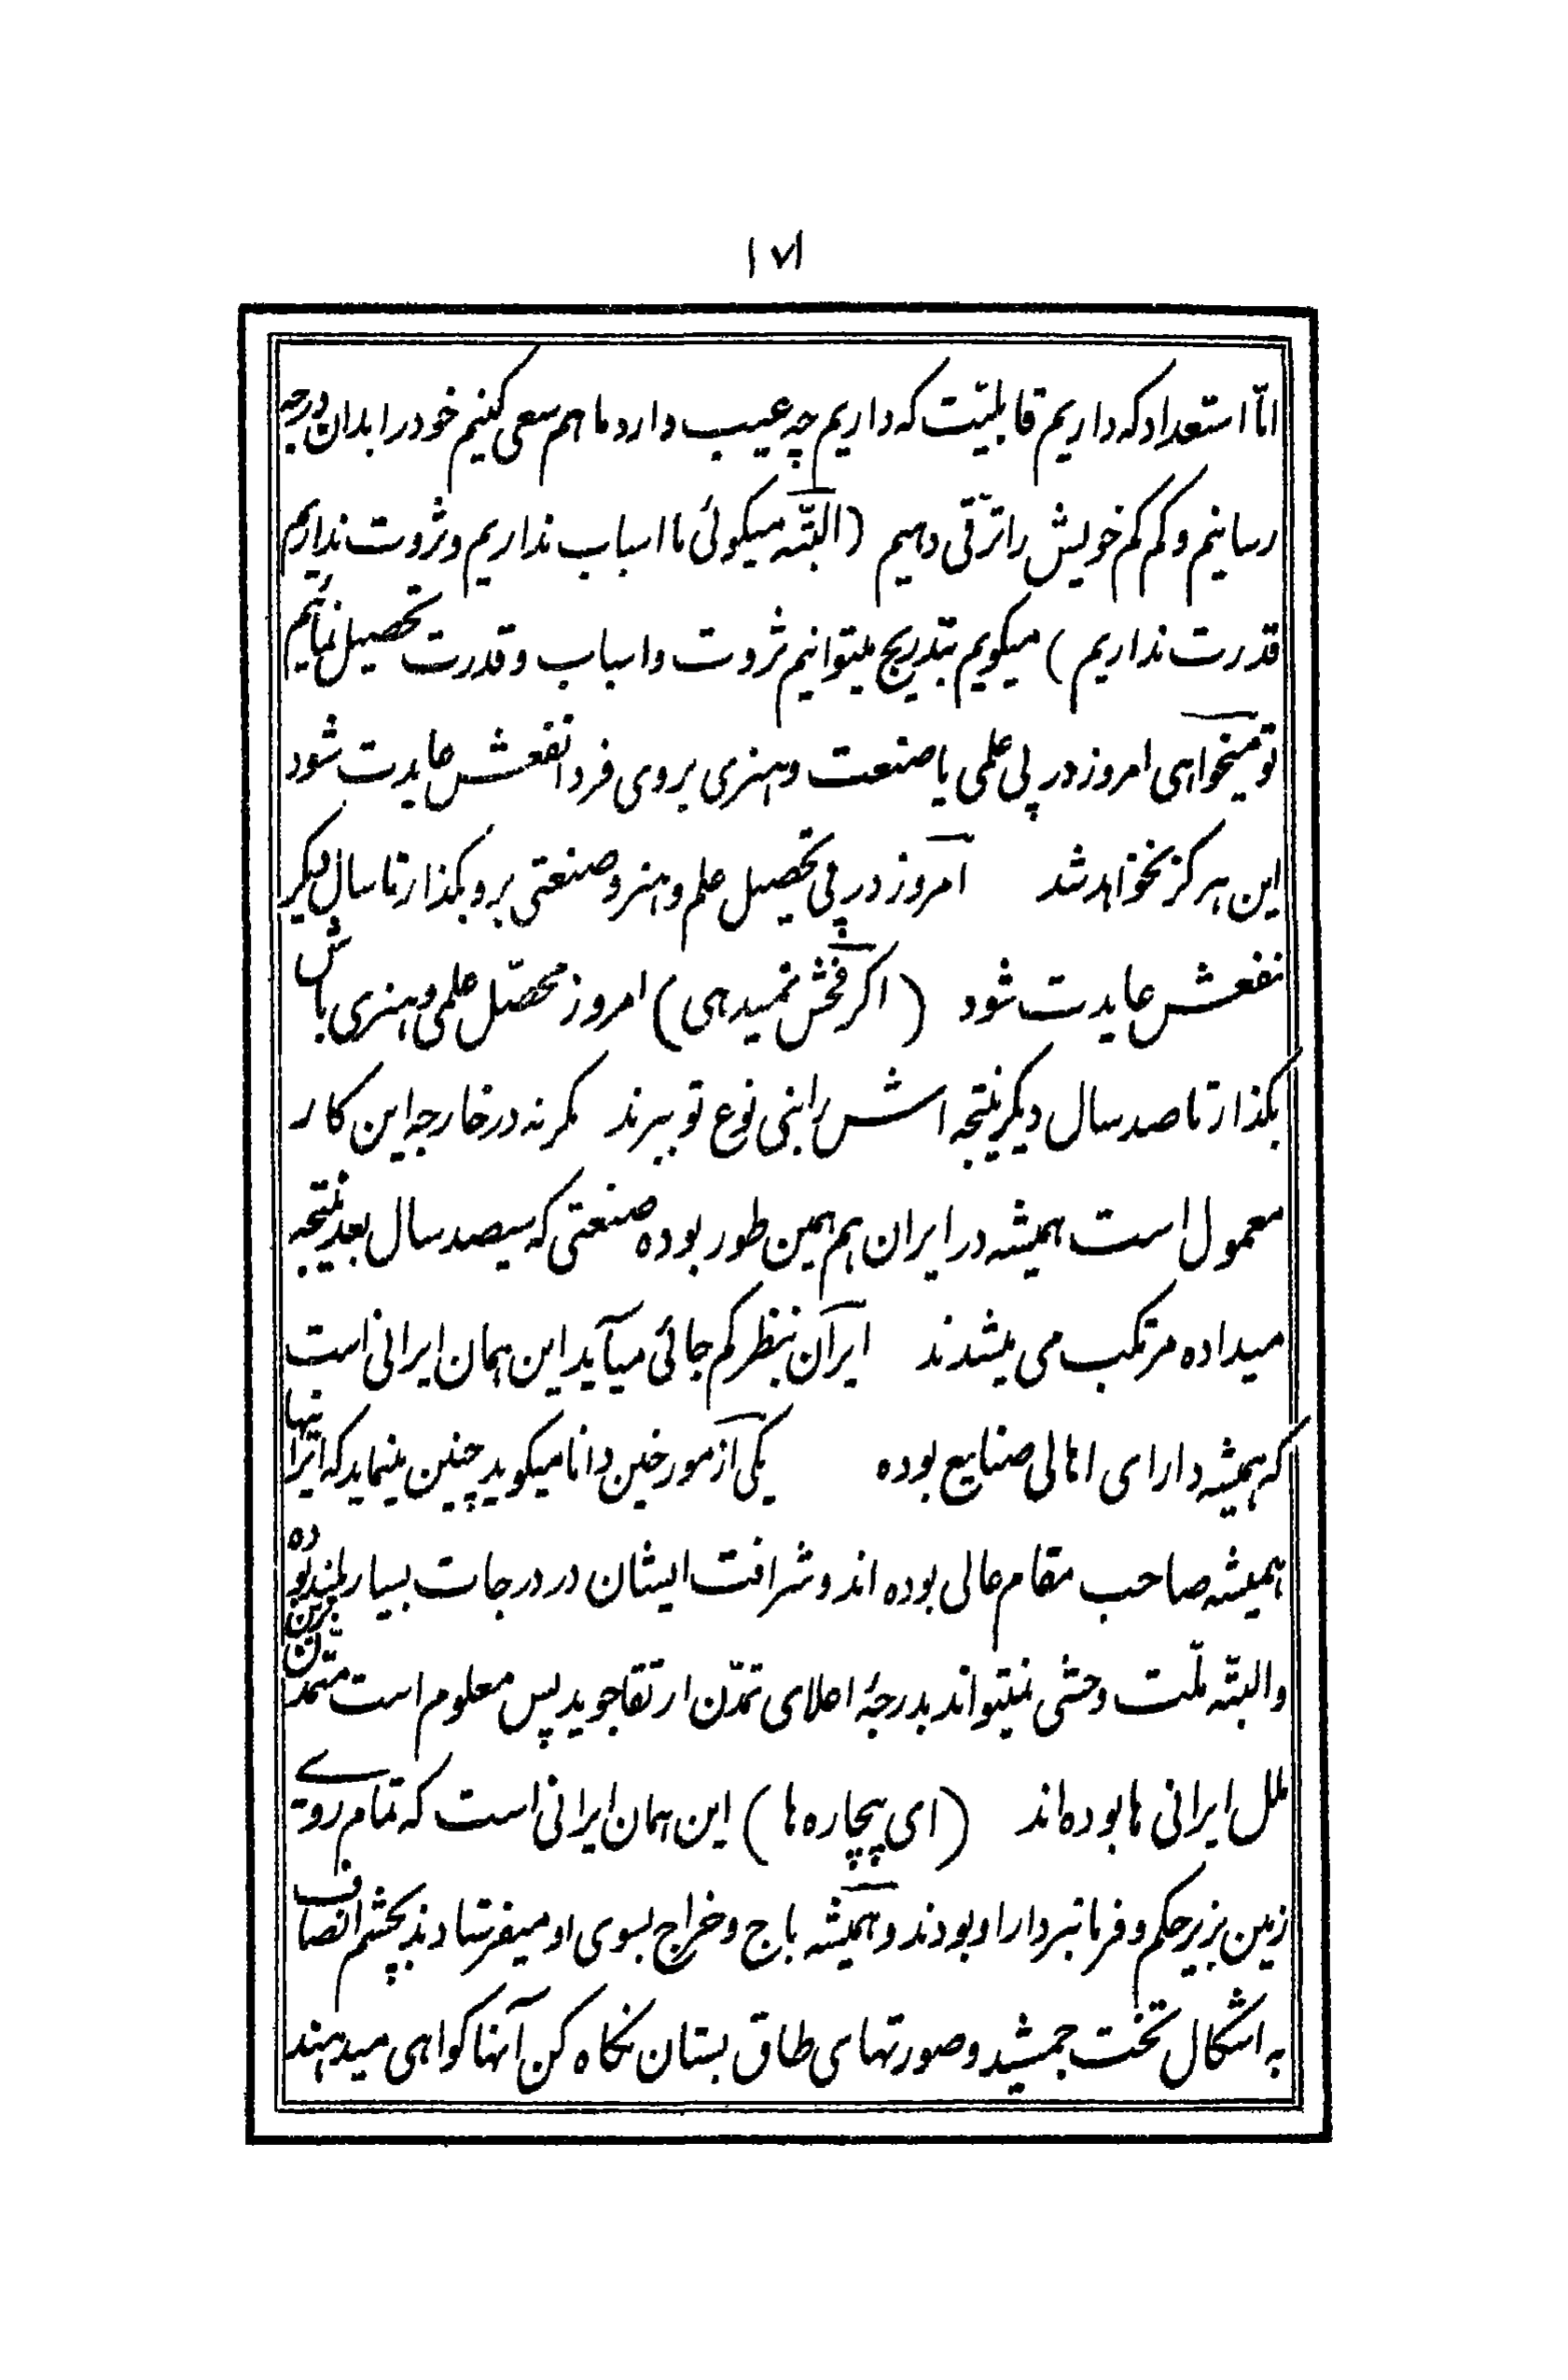 ۱۷۱
امّا استعداد که داریم قابلیّت که داریم چه عیب دارد ما هم سعی کنیم خود را بدان درجه
رسانیم و کم کم خویش را ترّقی دهیم (البتّه میکوئی ما اسباب نداریم و ثروت نداریم
قدرت نداریم) میکویم بتدریج میتوانیم ثروت و اسباب و قدرت تحصیل نمائیم
تو میخواهی امروز در پی علمی یا صنعت و هنری بروی فردا نفعش عایدت شود
این هرکز نخواهد شد امروز در پی تحصیل علم و هنر و صنعتی برو بکذار تا سال دیکر
نفعش عایدت شود (اکر فحش نمیدهی) امروز محصّل علمی و هنری باش
بکذار تا صد سال دیکر نتیجه اش را بنی نوع تو ببرند مکر نه در خارجه این کار
معمول است همیشه در ایران هم همین طور بوده صنعتی که سیصد سال بعد نتیجه
میداده مرتکب می میشدند ایران بنظر کم جائی میآید این همان ایرانی است
که همیشه دارای اهالی صنایع بوده یکی از مورخین دانا میکوید چنین مینماید که ایرانیها
همیشه صاحب مقام عالی بوده اند و شرافت ایشان در درجات بسیار بلند بوده
والبتّه ملّت وحشی نمیتواند بدرجهٔ اعلای تمدّن ارتقا جوید پس معلوم است متمدّن ترین
ملل ایرانی ها بوده اند (ای بیچاره ها) این همان ایرانی است که تمام روی
زمین بزیر حکم و فرمانبردار او بودند و همیشه باج و خراج بسوی او میفرستادند بچشم انصاف
به اشکال تخت جمشید و صورتهای طاق بستان نکاه کن آنها کواهی میدهند